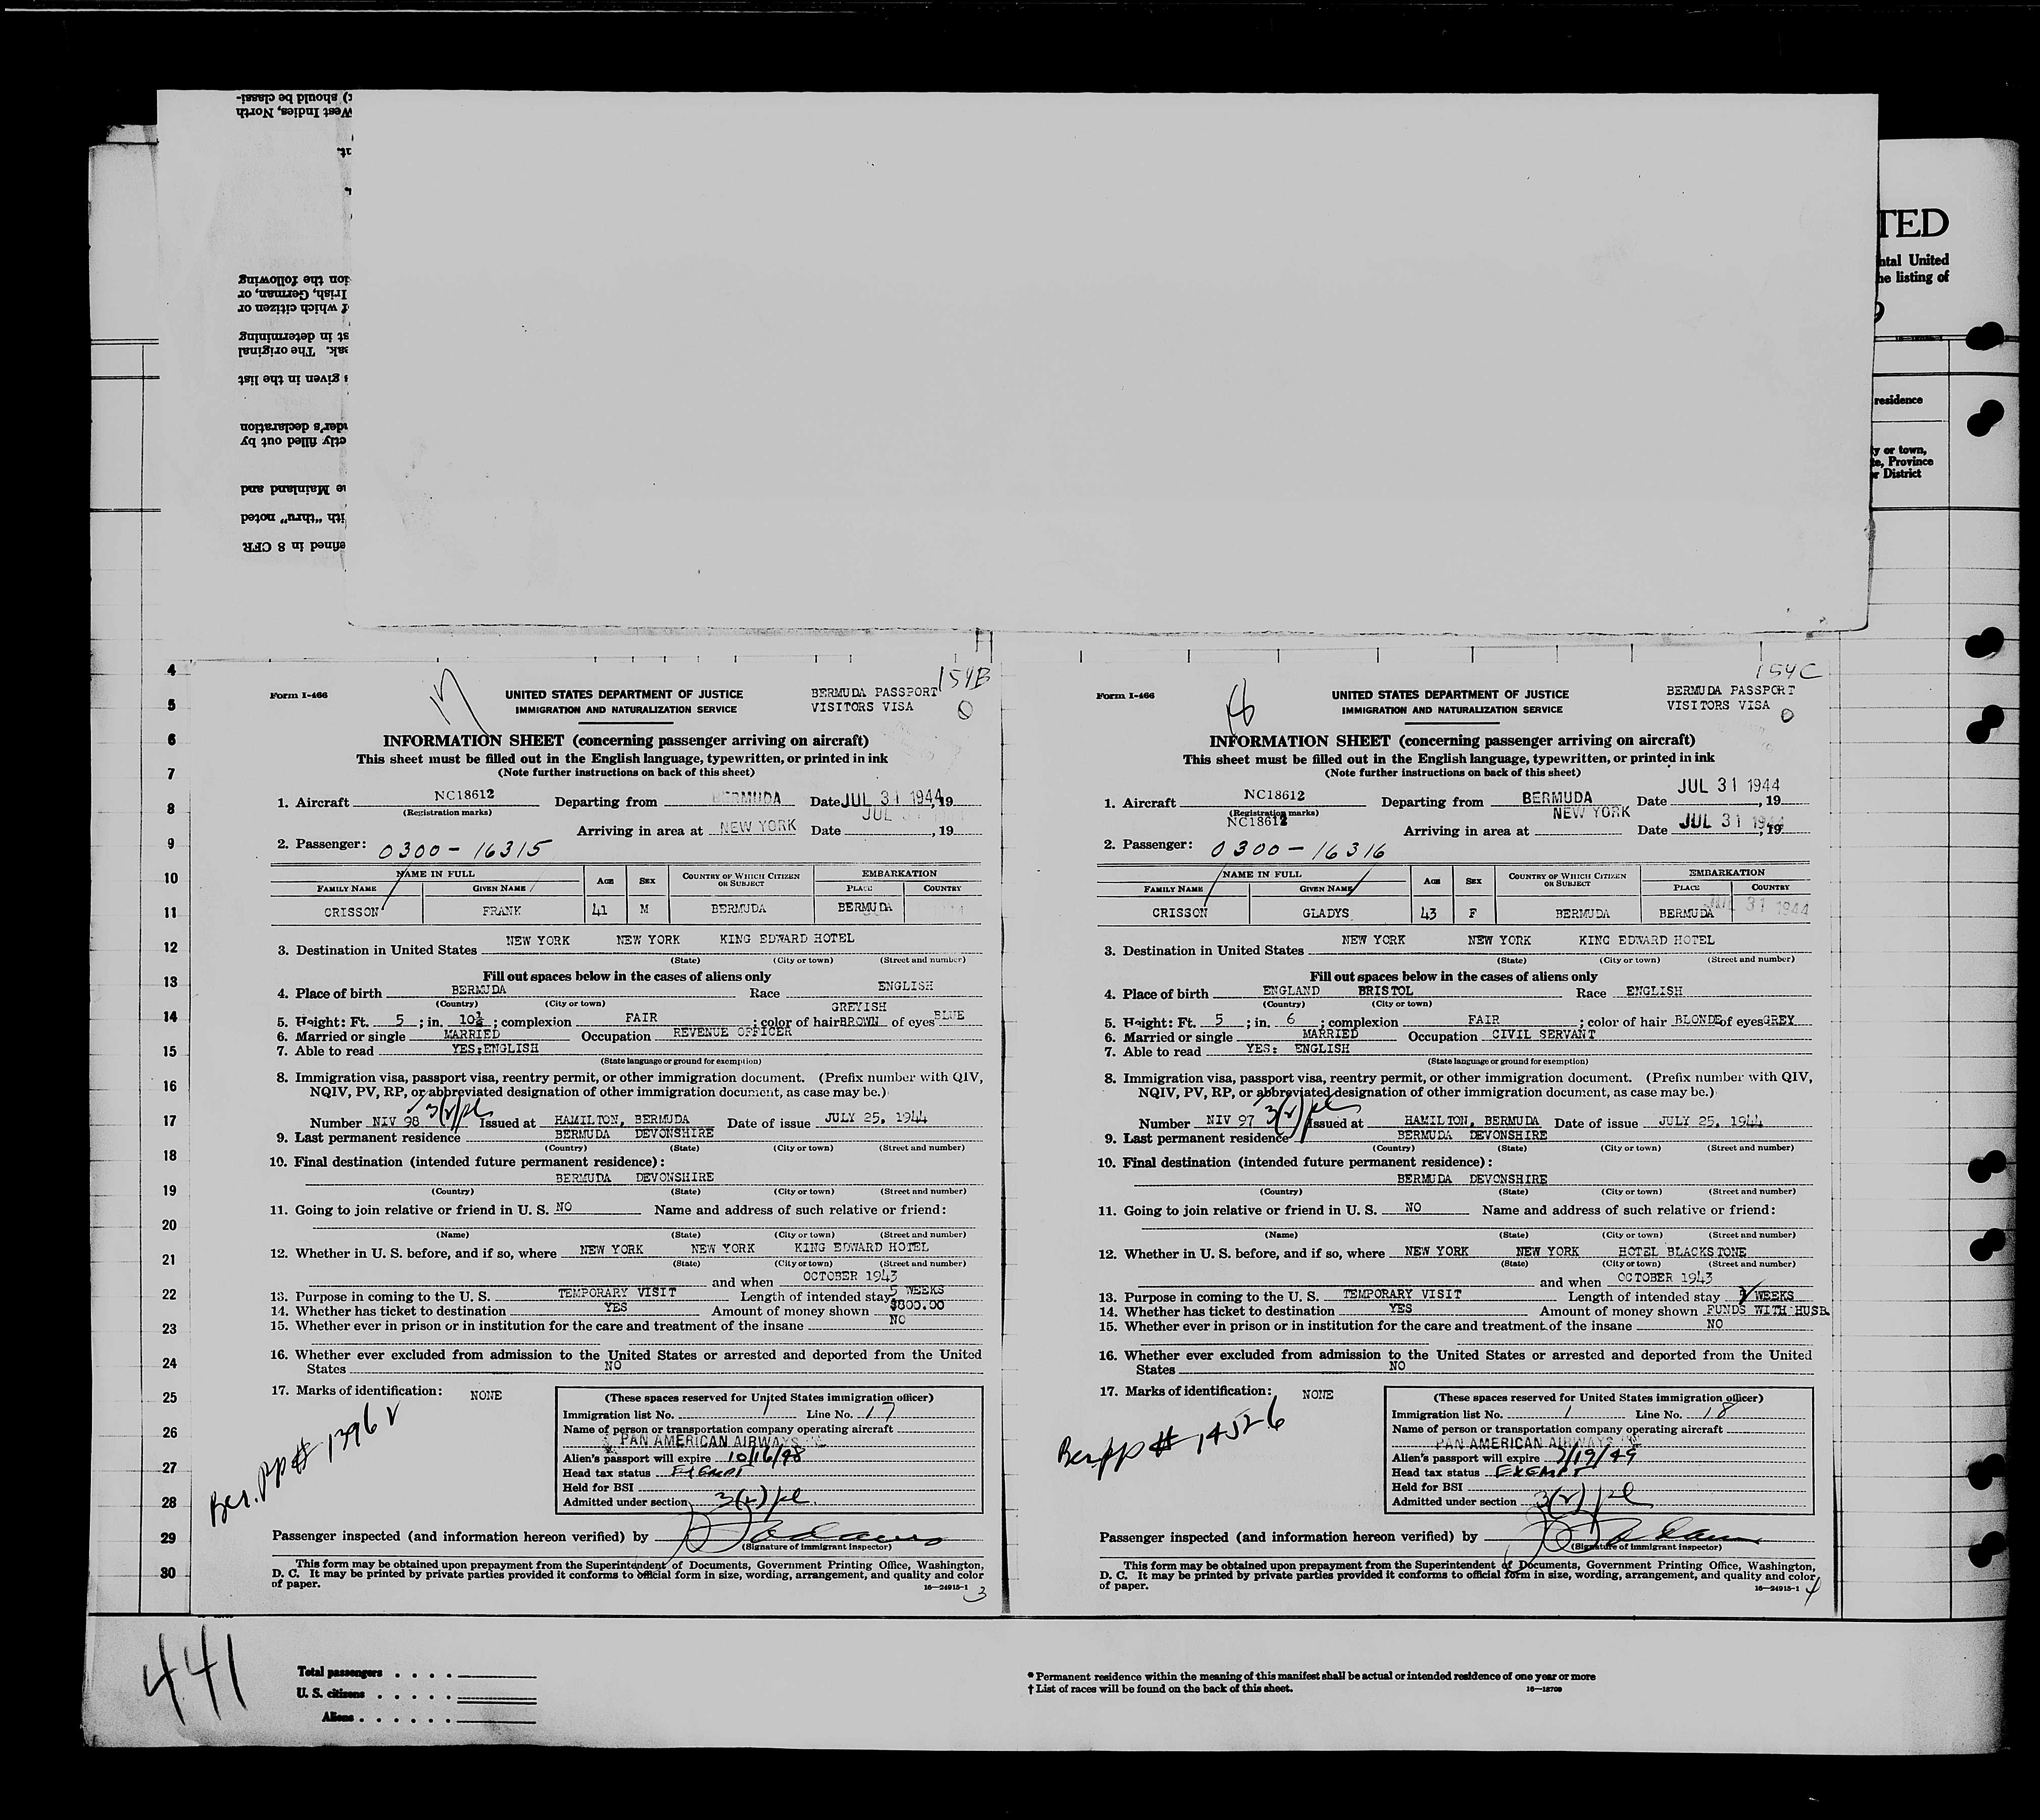 s) should be classi-
West Indies, North
ion the following
Irish, German, or
f which citizen or
st in determining
eak. The original
s given in the list
nder's declaration
ctly filled out by
he Mainland and
ith "thru" noted
efined in 8 CFR
TED
ntal United
he listing of
residence
y or town,
te, Province
r District
4
5
6
7
8
9
10
11
12
13
14
15
16
17
18
19
20
21
22
23
24
25
26
27
28
29
30
17
154B
Form I-466
UNITED STATES DEPARTMENT OF JUSTICE
IMMIGRATION AND NATURALIZATION SERVICE
BERMUDA PASSPORT
VISITORS VISA
INFORMATION SHEET (concerning passenger arriving on aircraft)
This sheet must be filled out in the English language, typewritten, or printed in ink
(Note further instructions on back of this sheet)
1. Aircraft NC18612 Departing from BERMUDA Date JUL 31 1944, 19
(Registration marks)
JUL 31 1944
Arriving in area at NEW YORK Date , 19
2. Passenger: 0300-16315
NAME IN FULL AGE SEX COUNTRY OF WHICH CITIZEN OR SUBJECT EMBARKATION
FAMILY NAME GIVEN NAME PLACE COUNTRY
CRISSON FRANK 41 M BERMUDA BERMUDA
3. Destination in United States NEW YORK NEW YORK KING EDWARD HOTEL
(State) (City or town) (Street and number)
Fill out spaces below in the cases of aliens only
4. Place of birth BERMUDA Race ENGLISH
(Country) (City or town)
GREYISH
5. Height: Ft. 5 ; in. 10½ ; complexion FAIR ; color of hair BROWN of eyes BLUE
6. Married or single MARRIED Occupation REVENUE OFFICER
7. Able to read YES:ENGLISH
(State language or ground for exemption)
8. Immigration visa, passport visa, reentry permit, or other immigration document. (Prefix number with QIV,
NQIV, PV, RP, or abbreviated designation of other immigration document, as case may be.)
Number NIV 98 3(2)pl Issued at HAMILTON, BERMUDA Date of issue JULY 25, 1944
9. Last permanent residence BERMUDA DEVONSHIRE
(Country) (State) (City or town) (Street and number)
10. Final destination (intended future permanent residence):
BERMUDA DEVONSHIRE
(Country) (State) (City or town) (Street and number)
11. Going to join relative or friend in U. S. NO Name and address of such relative or friend:
(Name) (State) (City or town) (Street and number)
12. Whether in U. S. before, and if so, where NEW YORK NEW YORK KING EDWARD HOTEL
(State) (City or town) (Street and number)
and when OCTOBER 1943
13. Purpose in coming to the U. S. TEMPORARY VISIT Length of intended stay 5 WEEKS
14. Whether has ticket to destination YES Amount of money shown $800.00
15. Whether ever in prison or in institution for the care and treatment of the insane NO
16. Whether ever excluded from admission to the United States or arrested and deported from the United
States NO
17. Marks of identification: NONE
Ber. pp#
(These spaces reserved for United States immigration officer)
Immigration list No. 1 Line No. 17
Name of person or transportation company operating aircraft
PAN AMERICAN AIRWAYS
Alien's passport will expire 10/16/48
Head tax status EXEMPT
Held for BSI
Admitted under section 3(2) pl.
Passenger inspected (and information hereon verified) by
(Signature of immigrant inspector)
This form may be obtained upon prepayment from the Superintendent of Documents, Government Printing Office, Washington,
D. C. It may be printed by private parties provided it conforms to official form in size, wording, arrangement, and quality and color
of paper.
16—24915-1
3
18
154C
Form I-466
UNITED STATES DEPARTMENT OF JUSTICE
IMMIGRATION AND NATURALIZATION SERVICE
BERMUDA PASSPORT
VISITORS VISA
INFORMATION SHEET (concerning passenger arriving on aircraft)
This sheet must be filled out in the English language, typewritten, or printed in ink
(Note further instructions on back of this sheet)
JUL 31 1944
1. Aircraft NC18612 Departing from BERMUDA Date , 19
(Registration marks)
NC18612 NEW YORK
Arriving in area at Date JUL 31 1944, 19
2. Passenger: 0300-16316
NAME IN FULL AGE SEX COUNTRY OF WHICH CITIZEN OR SUBJECT EMBARKATION
FAMILY NAME GIVEN NAME PLACE COUNTRY
JUL 31 1944
CRISSON GLADYS 43 F BERMUDA BERMUDA
3. Destination in United States NEW YORK NEW YORK KING EDWARD HOTEL
(State) (City or town) (Street and number)
Fill out spaces below in the cases of aliens only
4. Place of birth ENGLAND BRISTOL Race ENGLISH
(Country) (City or town)
5. Height: Ft. 5 ; in. 6 ; complexion FAIR ; color of hair BLONDE of eyes GREY
6. Married or single MARRIED Occupation CIVIL SERVANT
7. Able to read YES: ENGLISH
(State language or ground for exemption)
8. Immigration visa, passport visa, reentry permit, or other immigration document. (Prefix number with QIV,
NQIV, PV, RP, or abbreviated designation of other immigration document, as case may be.)
Number NIV 97 3(2)pl Issued at HAMILTON, BERMUDA Date of issue JULY 25, 1944
9. Last permanent residence BERMUDA DEVONSHIRE
(Country) (State) (City or town) (Street and number)
10. Final destination (intended future permanent residence):
BERMUDA DEVONSHIRE
(Country) (State) (City or town) (Street and number)
11. Going to join relative or friend in U. S. NO Name and address of such relative or friend:
(Name) (State) (City or town) (Street and number)
12. Whether in U. S. before, and if so, where NEW YORK NEW YORK HOTEL BLACKSTONE
(State) (City or town) (Street and number)
and when OCTOBER 1943
13. Purpose in coming to the U. S. TEMPORARY VISIT Length of intended stay WEEKS
14. Whether has ticket to destination YES Amount of money shown FUNDS WITH HUSB.
15. Whether ever in prison or in institution for the care and treatment of the insane NO
16. Whether ever excluded from admission to the United States or arrested and deported from the United
States NO
17. Marks of identification: NONE
Ber pp #
(These spaces reserved for United States immigration officer)
Immigration list No. 1 Line No. 18
Name of person or transportation company operating aircraft
PAN AMERICAN AIRWAYS
Alien's passport will expire
Head tax status EXEMPT
Held for BSI
Admitted under section 3(2) pl
Passenger inspected (and information hereon verified) by
(Signature of immigrant inspector)
This form may be obtained upon prepayment from the Superintendent of Documents, Government Printing Office, Washington,
D. C. It may be printed by private parties provided it conforms to official form in size, wording, arrangement, and quality and color
of paper.
16—24915-1
4
441
Total passengers
U. S. citizens
Aliens
* Permanent residence within the meaning of this manifest shall be actual or intended residence of one year or more
† List of races will be found on the back of this sheet.
16—18709